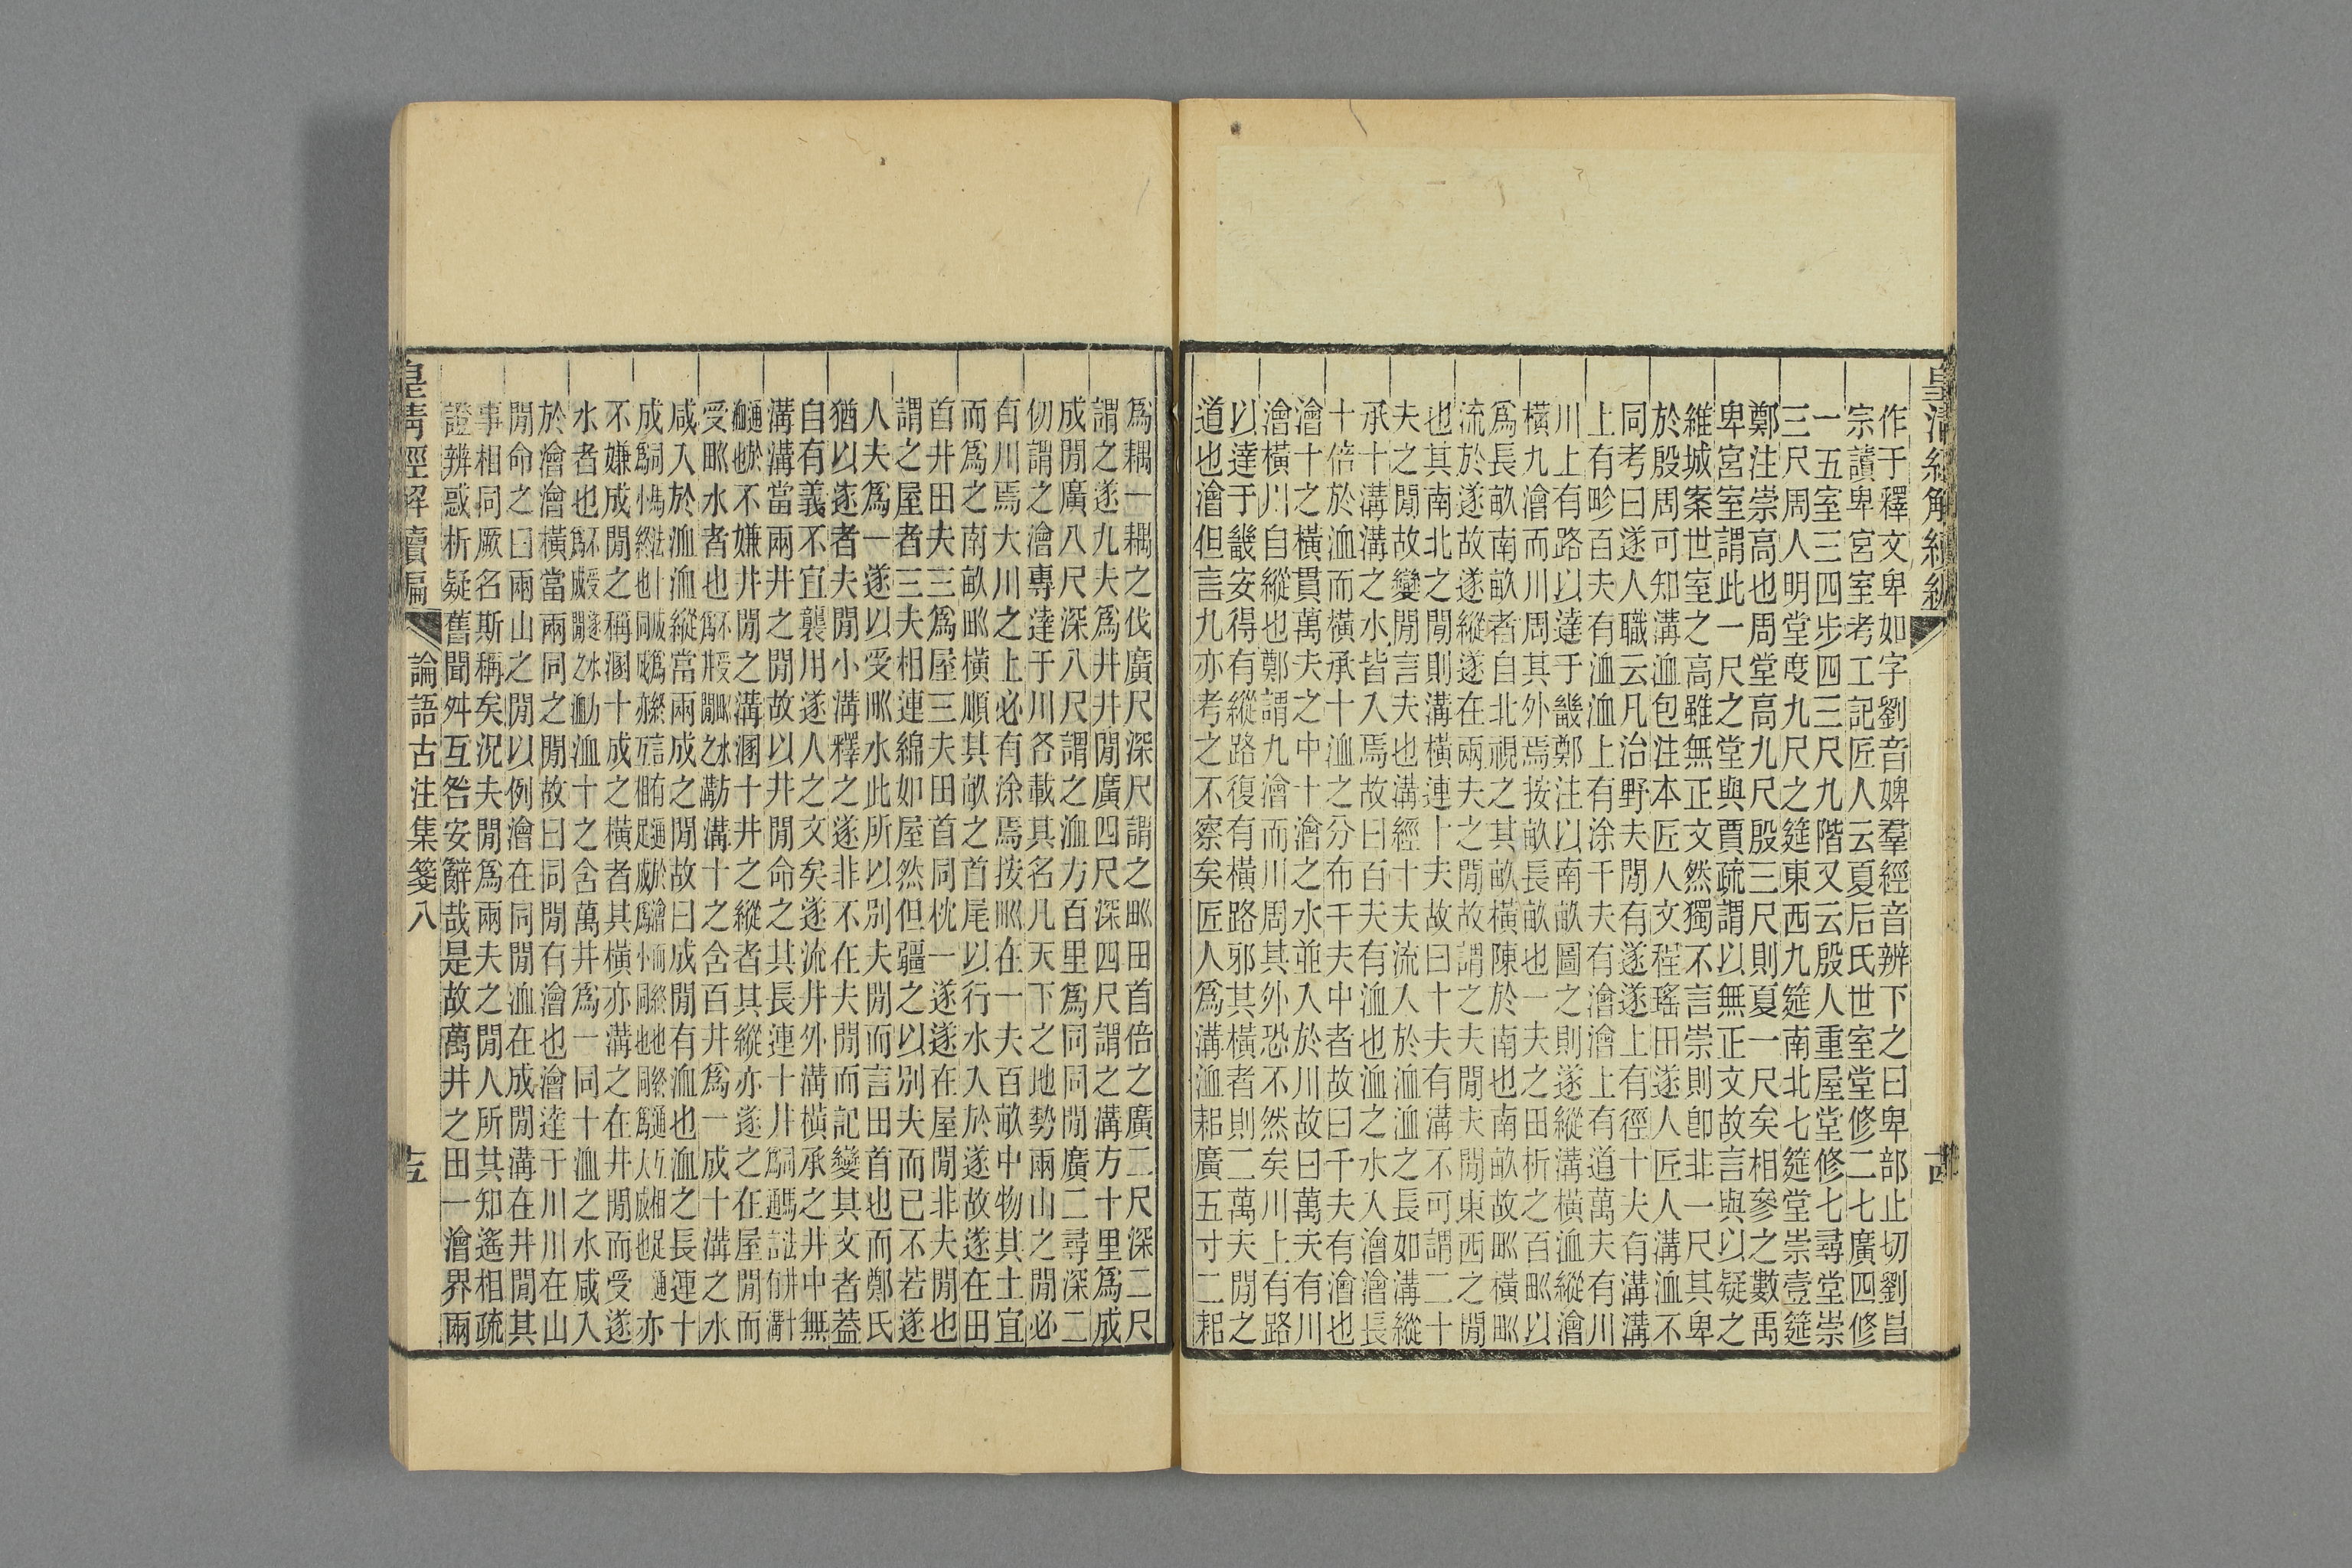 作于釋文卑如字劉音婢羣經音辨下之曰卑部止切劉昌
宗讀卑宮室考工記匠人云夏后氏世室堂修二七廣四修
一五室三四步四三尺九階又云殷人重屋堂修七尋堂崇
三尺周人明堂度九尺之筵東西九筵南北七筵堂崇壹筵
鄭注崇高也周堂高九尺殷三尺則夏一尺矣相參之數禹
卑宮室謂此一尺之堂與賈疏謂以無正文故言與以疑之
維城案世室之高雖無正文然獨不言崇則卽非一尺其卑
於殷周可知溝洫包注本匠人文程瑤田遂人匠人溝洫不
同考曰遂人職云凡治野夫閒有遂遂上有徑十夫有溝溝
上有畛百夫有洫洫上有涂千夫有澮澮上有道萬夫有川
川上有路以達于畿鄭注以南畝圖之則遂縱溝橫洫縱澮
橫九澮而川周其外焉按畝長畝也一夫之田析之百甽以
爲長畝南畝者自北視之其畝橫陳於南也南畝故甽橫甽
流於遂故遂縱遂在兩夫之閒故謂之夫閒夫閒東西之閒
也其南北之閒則溝橫連十夫故曰十夫有溝不可謂二十
夫之閒故變閒言夫也溝經十夫流入於洫洫之長如溝縱
承十溝溝之水皆入焉故曰百夫有洫也洫之水入澮澮長
十倍於洫而橫承十洫之分布千夫中者故曰千夫有澮也
澮十之橫貫萬夫之中十澮之水並入於川故曰萬夫有川
澮橫川自縱也鄭謂九澮而川周其外恐不然矣川上有路
以達于畿安得有縱路復有橫路邪其橫者則二萬夫閒之
道也澮但言九亦考之不察矣匠人爲溝洫耜廣五寸二耜
爲耦一耦之伐廣尺深尺謂之甽田首倍之廣二尺深二尺
謂之遂九夫爲井井閒廣四尺深四尺謂之溝方十里爲成
成閒廣八尺深八尺謂之洫方百里爲同同閒廣二尋深二
仞謂之澮專達于川各載其名凡天下之地勢兩山之閒必
有川焉大川之上必有涂焉按甽在一夫百畝中物其土宜
而爲之南畝甽橫順其畝之首尾以行水入於遂故遂在田
首井田夫三爲屋三夫田首同枕一遂遂在屋閒非夫閒也
謂之屋者三夫相連綿如屋然但疆之以別夫而已不若遂
人夫爲一遂以受甽水此所以別夫閒而言田首也而鄭氏
猶以遂者夫閒小溝釋之遂非不在夫閒而記變其文者蓋
自有義不宜襲用遂人之文矣遂流井外溝橫承之井中無
溝溝當兩井之閒故以井閒命之其長連十井
不嫌井閒之溝溷十井之縱者其縱亦遂之在屋閒而
受甽水者也溝十之含百井爲一成十溝之水
咸入於洫洫縱當兩成之閒故曰成閒有洫也洫之長連十
不嫌成閒之稱溷十成之橫者其橫亦溝之在井閒而受遂
水者也洫十之含萬井爲一同十洫之水咸入
於澮澮橫當兩同之閒故曰同閒有澮也澮達于川川在山
閒命之曰兩山之閒以例澮在同閒洫在成閒溝在井閒其
事相同厥名斯稱矣況夫閒爲兩夫之閒人所其知遙相疏
證辨惑析疑舊聞舛互咎安辭哉是故萬井之田一澮界兩
皇清經解續編
論語古注集箋八